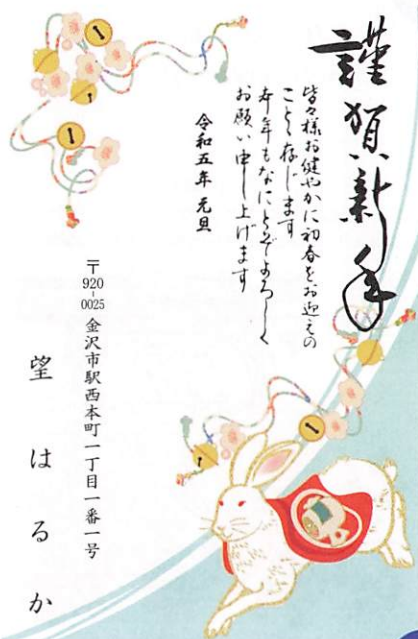 謹賀新年
皆々様お健やかに初春をお迎えの
ことと存じます
本年もなにとぞよろしく
お願い申し上げます
令和五年 元旦
〒920-0025 金沢市駅西本町一丁目一番一号
望 はるか